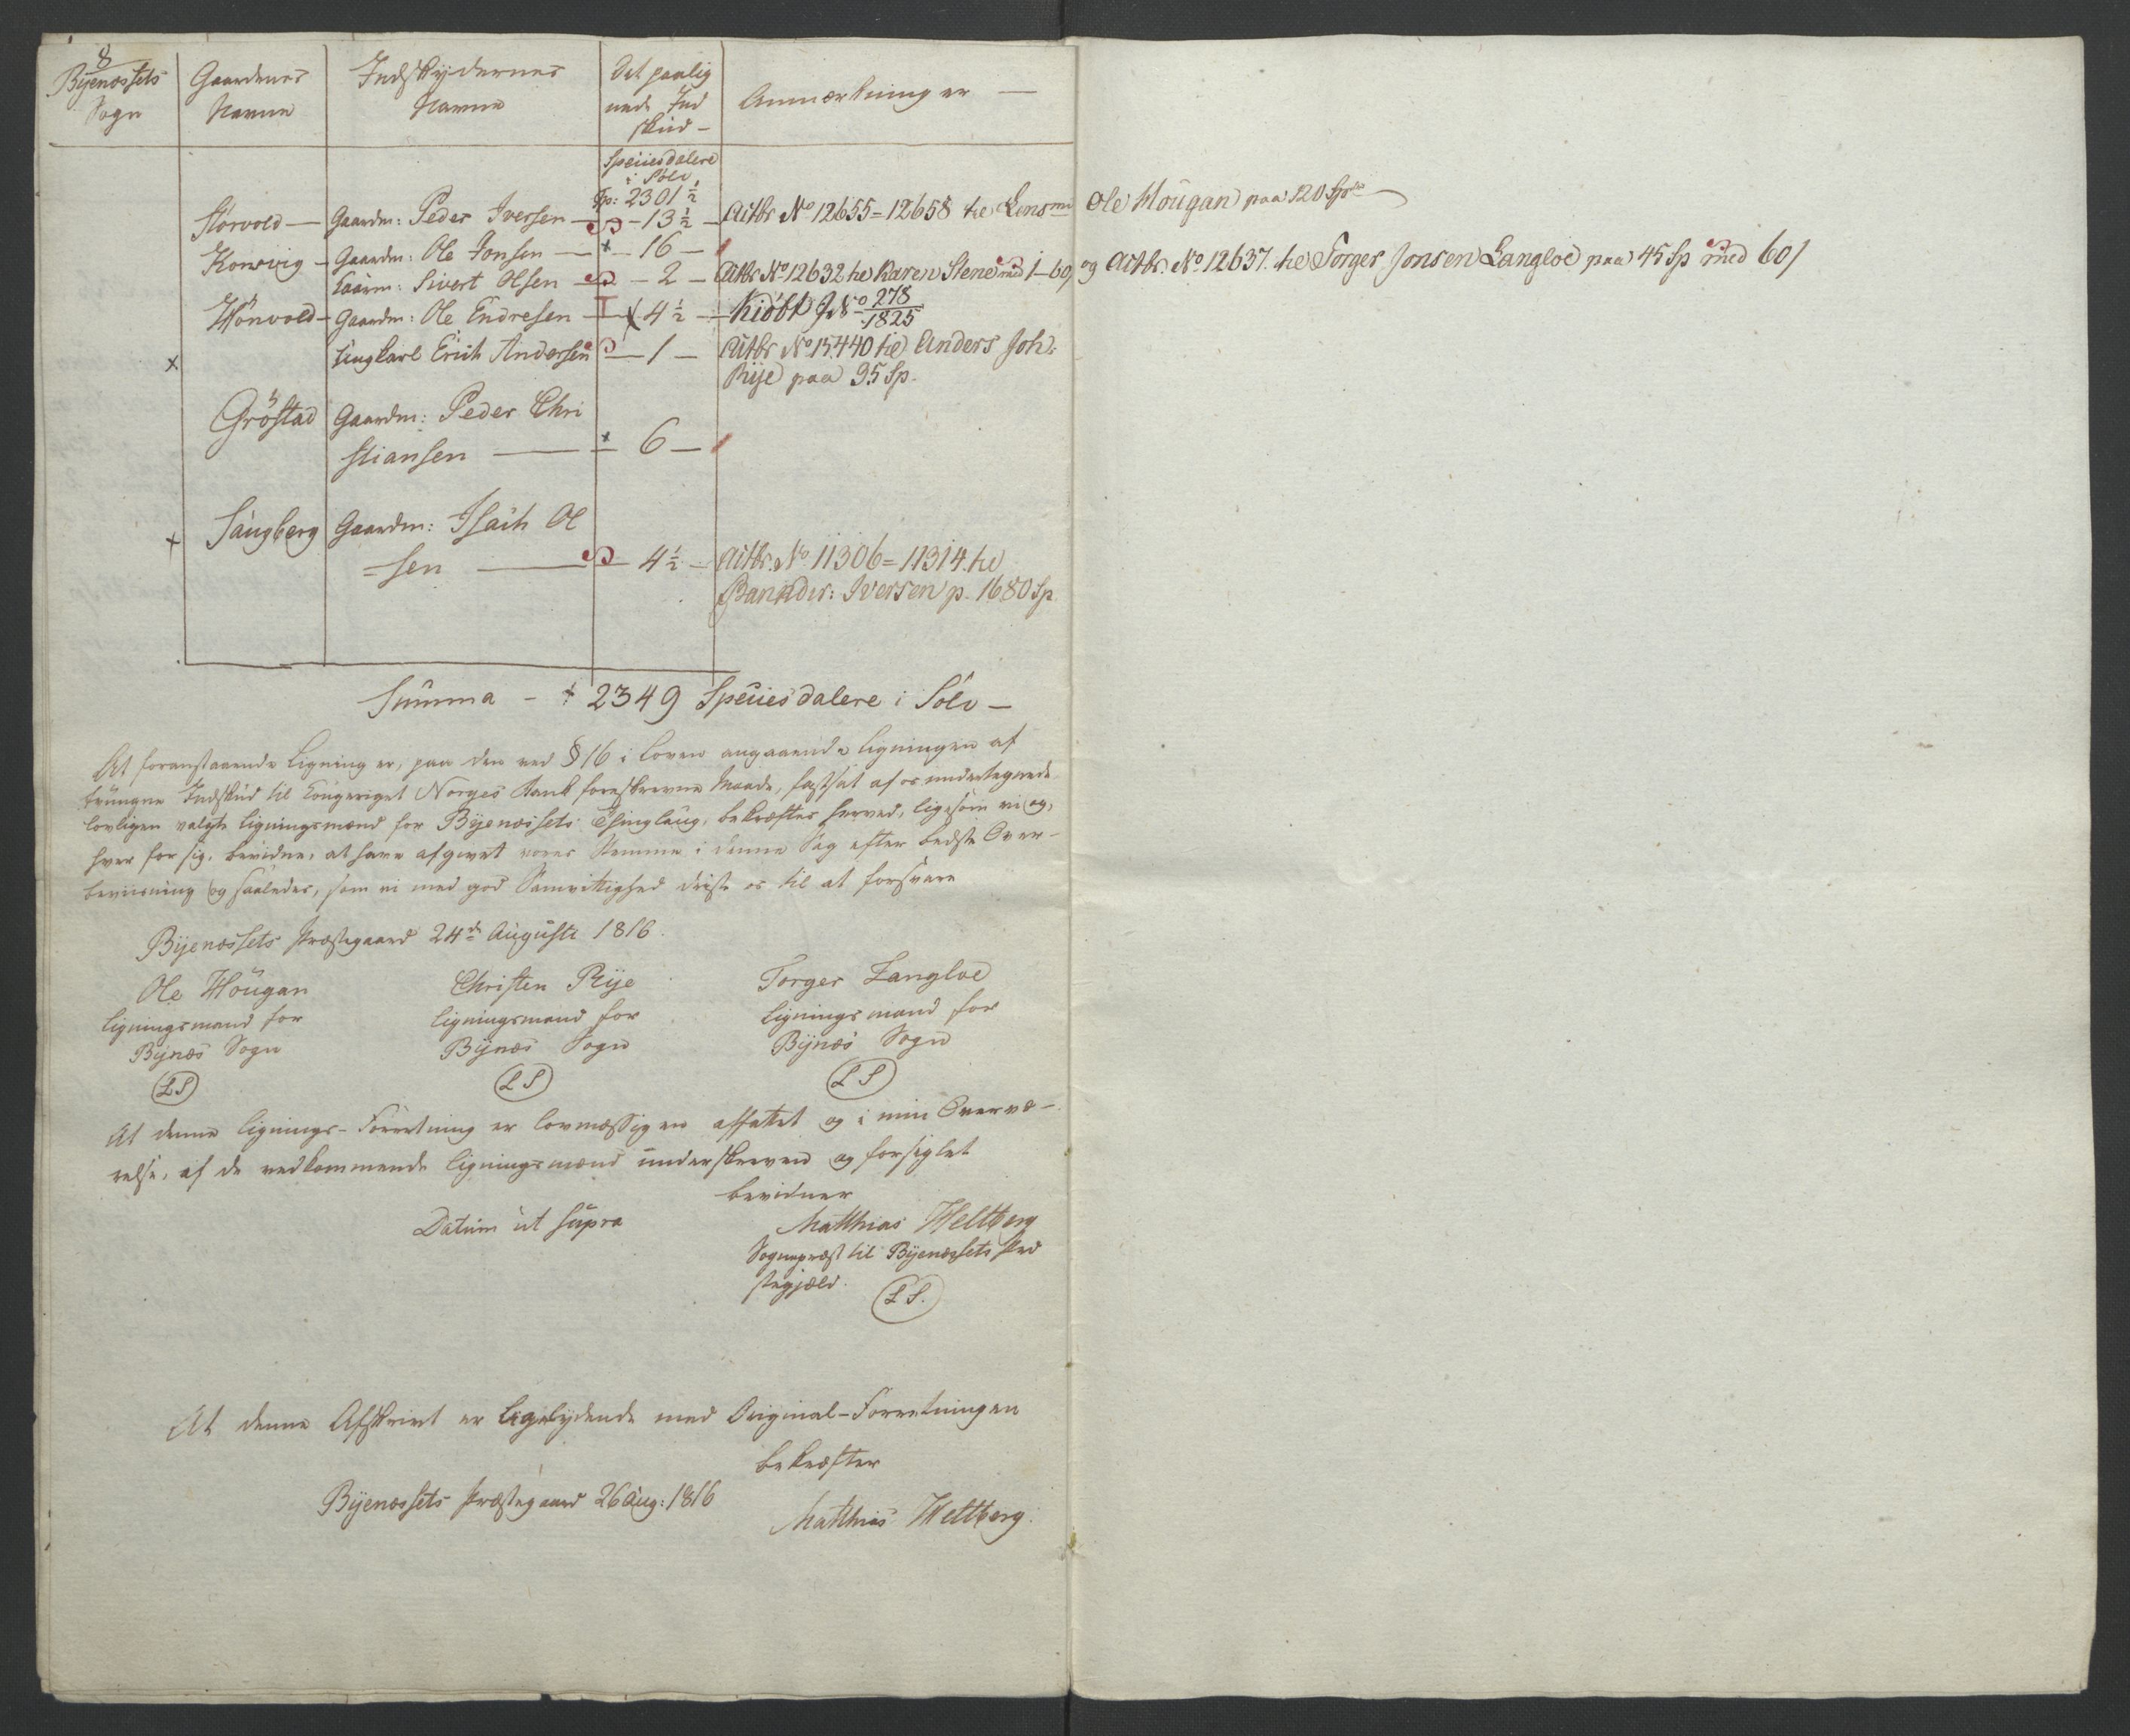 8
Byenæssets Sogn | Gaardenes Navne | Indskydernes Navne | Det paalignede Indskud - | Anmærkninger -
Speciesdalere i Sölv
Sp: 2301 ½
Storvold - Gaardm: Peder Iversen - 13 ½ - Actbr No 12655=12658 he Lensm Ole Hougan paa 120 Sp
Gaardm: Ole Jonsen - 16 -
Sivert Olsen - 2 - Actbr No 12632 he Karen Stene med 1-60, og Actbr. No 12637. he Torger Jonsen Langloe paa 45 Sp med 60/
Hönvold - Gaardm: Ole Endresen - 4 ½ - Kiöbt J No 278/1825
x Ungkarl Erich Andersen - 1 - Actbr No 15440 he Anders Joh:
Rije paa 95 Sp.
Gröstad Gaardm: Peder Chri
stiansen - 6 -
x Saugberg Gaardm: Isach Ol
=sen - 4 ½ - Actbr. No 11306=11314. he
Bankdir: Iversen p. 1680 Sp
Summa - 2349 Speciesdalere i Sölv -
At foranstaaende Ligning er, paa den ved § 16 i Loven angaaende Ligningen af
tvungne Indskud til Kongeriget Norges Bank foreskrevne Maade, fastsat af os undertegnede
lovligen valgte Ligningsmænd for Byenæssets Thinglaug, bekræftes herved, ligesom vi og,
hver for sig, bevidne, at have afgivet vores Stemme i denne Sag efter bedste Over-
beviisning og saaledes, som vi med god Samvittighed driste os til at forsvare
Byenæssets Præstegaard 24de Augusti 1816.
Ole Hougan | Christen Rije | Torger Langloe
Ligningsmand for | Ligningsmand for | Lignings mand for
Bynæs Sogn | Bynæs Sogn | Bynæs Sogn
LS | LS | LS
At denne Lignings-Forretning er lovmæssigen affattet og i min Overvæ-
relse, af de vedkommende Ligningsmænd underskreven og forsiglet
bevidner
Datum ut supra
Matthias Weltberg
Sognepræst til Byenæssets Præ
stegjæld.
LS.
At denne Afskrivt er ligelydende med Original-Forretningen
bekræfter
Byenæssets Præstegaard 26 Aug: 1816
Matthias Weltberg.